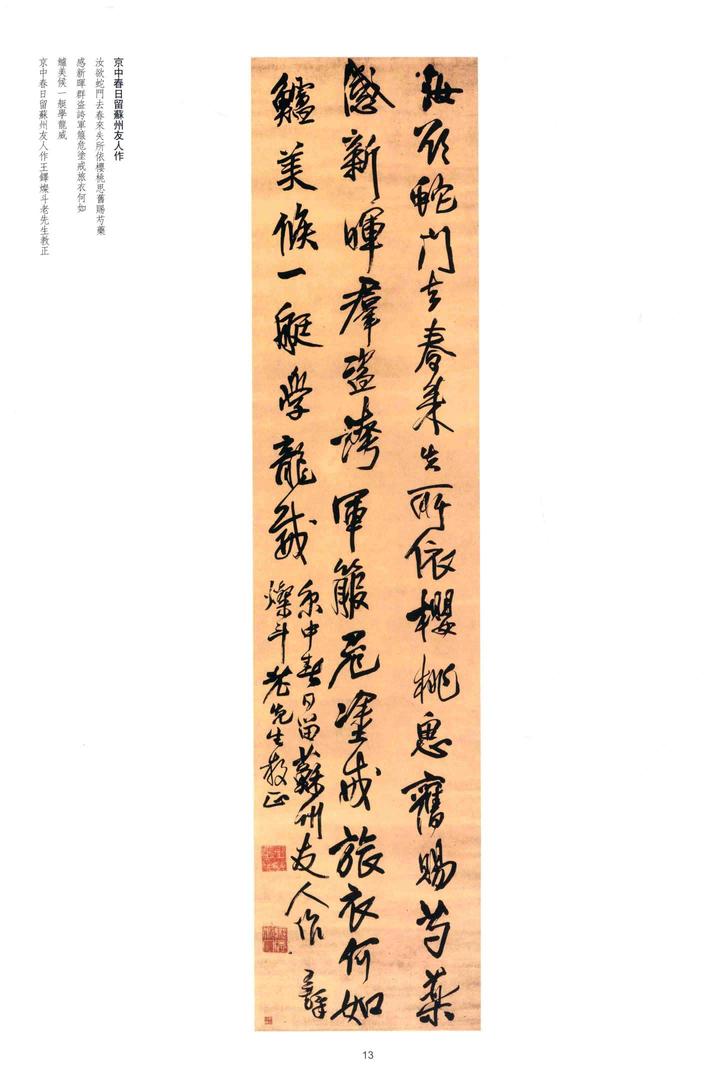 汝欲蛇門去春來失所依櫻桃思舊賜芍藥
感新暉羣盜誇軍箙危塗戒旅衣何如
鱸美候一艇學龍威
京中春日留蘇州友人作 王鐸
燦斗老先生教正
京中春日留蘇州友人作
汝欲蛇門去春來失所依櫻桃思舊賜芍藥
感新暉群盜誇軍箙危塗戒旅衣何如
鱸美候一艇學龍威
京中春日留蘇州友人作王鐸燦斗老先生教正
13